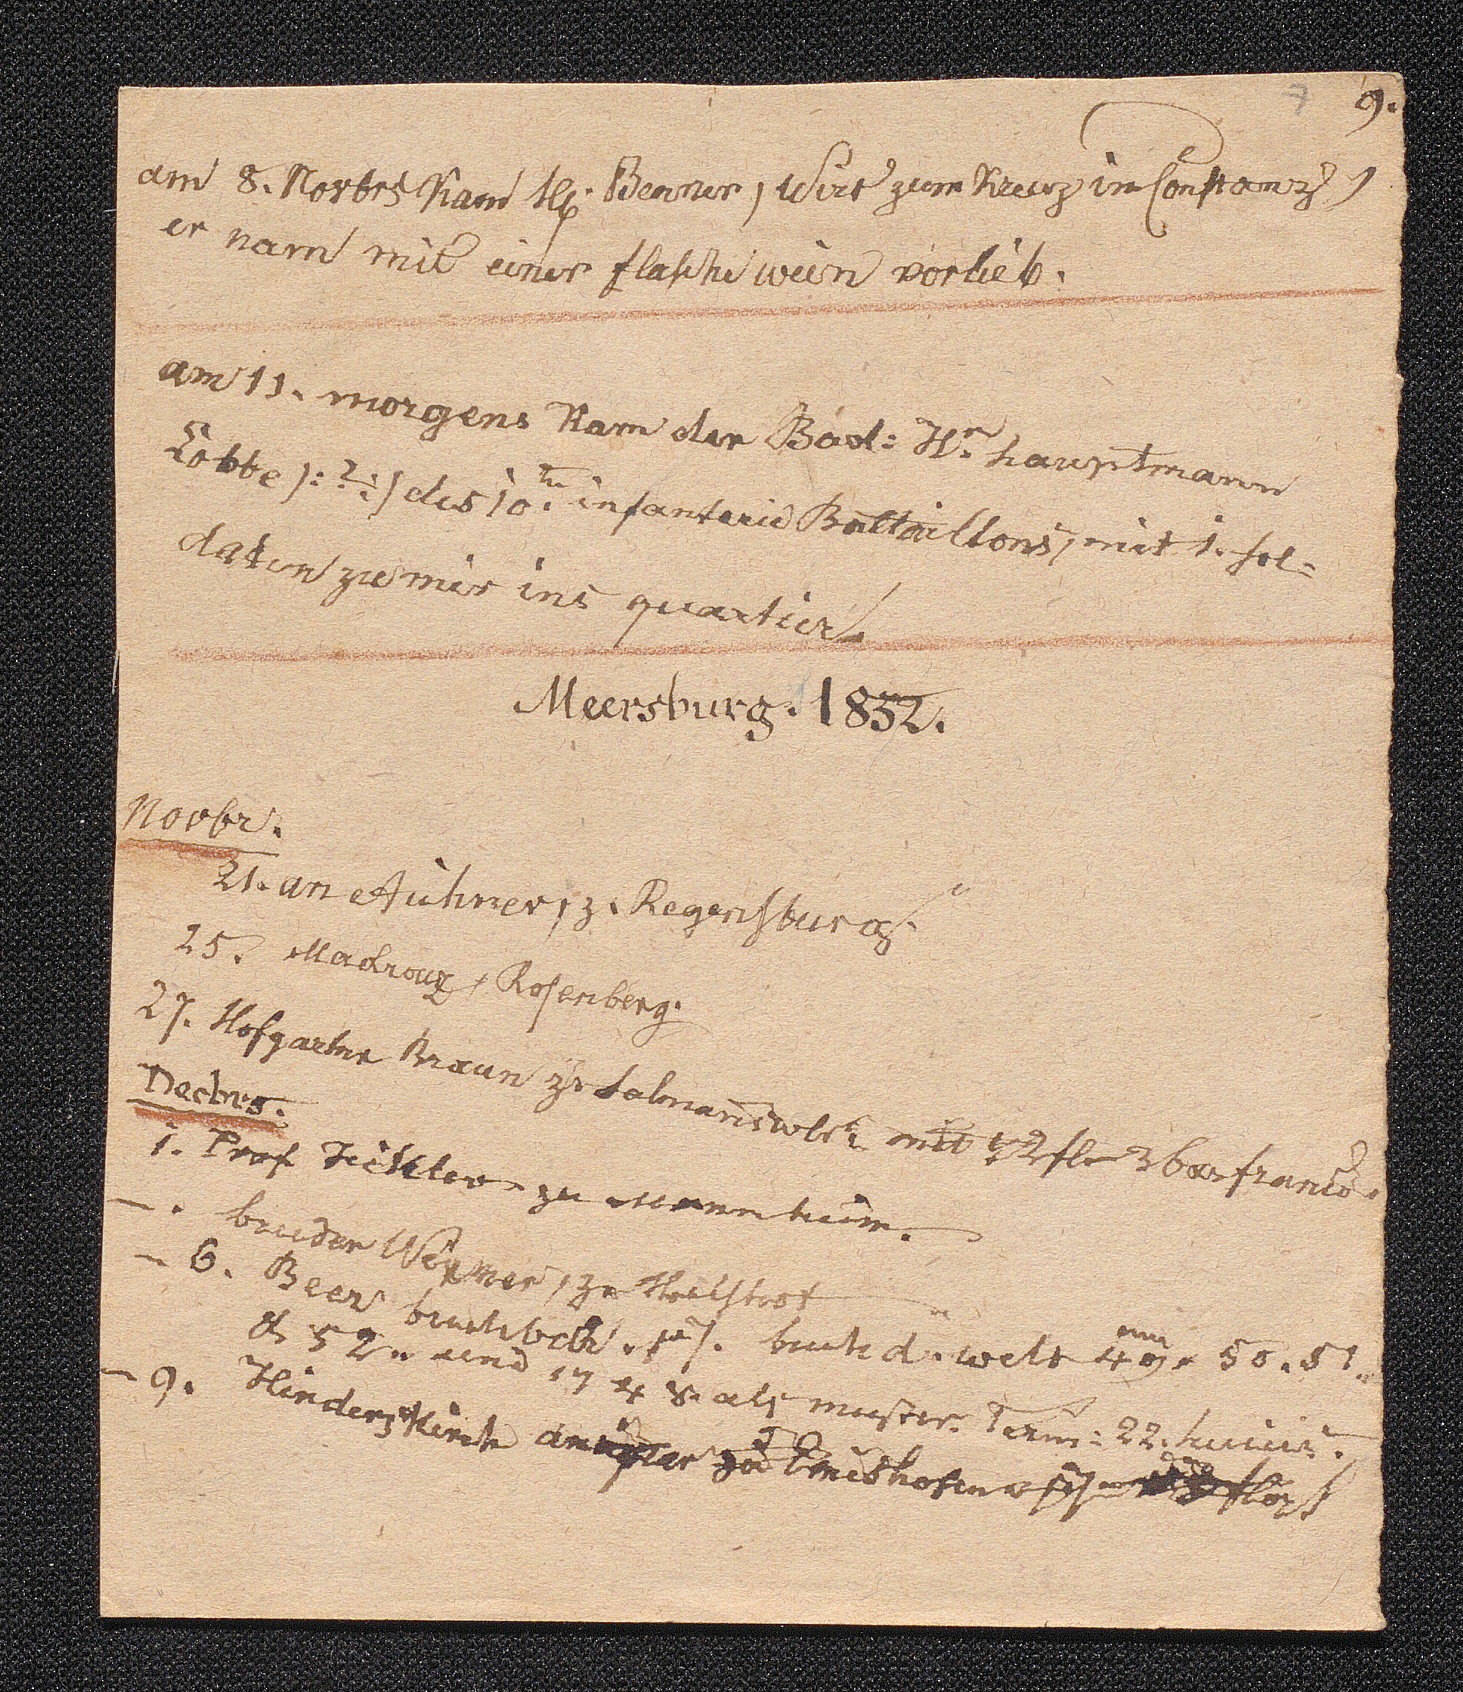 7 9.
am 8. Novbrs kam H: Benner, Wirt zum Kreuz in Constanz,
er nam mit einer flasche wein vorlieb.
am 11. morgens kam der Bad: Hr. hauptmann
Lobbe /: ? :/ des 10. tn infanterie Battaillons, mit 1. sol=
daten zu mir ins quartier.
Meersburg. 1832.
Novbr.
21. an Aichner, z. Regensburg.
25. Madroux, Rosenberg.
27. Hofgartner Braun zu Salmanswlr. mit 2 fl. 36 x. franco.
Decbrs.
1. Prof. zu Mannheim.
—. bruder Wegmer, zu
— 6. Beer buch d. welt 49. 50. 51.
& 52. und 1748. als muster. Term: 22. huius.
— 9. Hinderskirch zu Emishofen